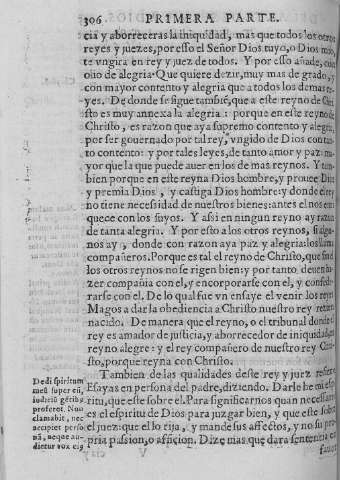 306 PRIMERA PARTE.
cia y aborreceras la iniquidad, mas que todos los otros
reyes y juezes, por esso el Señor Dios tuyo, o Dios mio,
te vngira en rey y juez de todos. Y por esso añade, con
olio de alegria. Que quiere dezir, muy mas de grado, y
con mayor contento y alegria que a todos los demas re-
yes. De donde se sigue tambiē, que a este reyno de Chri
sto es muy annexa la alegria: porque en este reyno de
Christo, es razon que aya supremo contento y alegria,
por ser gouernado por tal rey, vngido de Dios con tan
to contento: y por tales leyes, de tanto amor y paz ma-
yor que la que puede auer en los de mas reynos. Y tam-
bien porque en este reyna Dios hombre, y prouee Dios
y premia Dios, y castiga Dios hombre: y donde el rey
no tiene necessidad de nuestros bienes: antes el nos enri
quece con los suyos. Y assi en ningun reyno ay razon
de tanta alegria. Y por esto a los otros reynos, si algu-
nos ay, donde con razon aya paz y alegria los llama
compañeros. Porque es tal el reyno de Christo, que si no
los otros reynos no se rigen bien: y por tanto deuen ha
zer compañia con el, y encorporarse con el, y confede-
rarse con el. De lo qual fue vn ensaye el venir los reyes
Magos a dar la obediencia a Christo nuestro rey rezien
nacido. De manera que el reyno, o el tribunal donde el
rey es amador de justicia, y aborrecedor de iniquidad, es
reyno alegre: y el rey compañero de nuestro rey Chri-
sto, porque reyna con Christo.
Tambien de las qualidades deste rey y juez refiere
Esayas en persona del padre, diziendo. Darle he mi espi
ritu, que este sobre el. Para significarnos quan necessario
es el espiritu de Dios para juzgar bien, y que este sobre
el juez: que el lo rija, y mande sus affectos, y no su pro-
pria passion, o afficion. Dize mas que dara sentencia en
fauor
Dedi spiritum
meū super eū,
iudiciū gētibꝰ
proferet. Non
clamabit, nec
accipiet perso
nā, neque au-
dietur vox eiꝰ
V